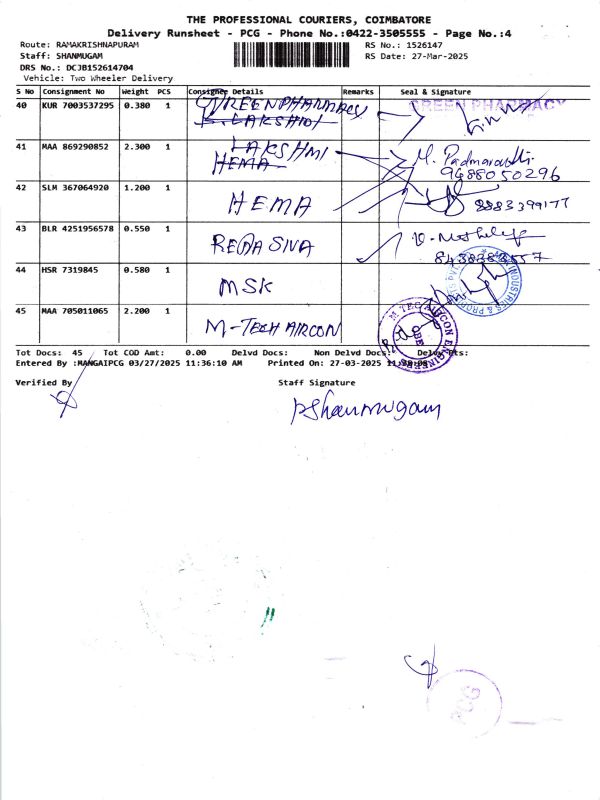 THE PROFESSIONAL COURIERS, COIMBATORE
Delivery Runsheet - PCG - Phone No.:0422-3505555 - Page No.:4
Route: RAMAKRISHNAPURAM RS No.: 1526147
Staff: SHANMUGAM RS Date: 27-Mar-2025
DRS No.: DCJB152614704
Vehicle: Two Wheeler Delivery
S No Consignment No Weight PCS Consignee Details Remarks Seal & Signature
40 KUR 7003537295 0.380 1 GREEN PHARMACY GREEN PHARMACY
LAKSHMI
41 MAA 869290852 2.300 1 LAKSHMI M. Padmavathi
HEMA 9488050296
42 SLM 367064920 1.200 1 HEMA 8883399177
43 BLR 4251956578 0.550 1 REMA SIVA
8438383557
44 HSR 7319845 0.580 1 MSK
45 MAA 705011065 2.200 1 M-TECH AIRCON M TEC AIRCON ENGINEERS
Tot Docs: 45 Tot COD Amt: 0.00 Delvd Docs: Non Delvd Docs: Delvd Pts:
Entered By :MANGAIPCG 03/27/2025 11:36:10 AM Printed On: 27-03-2025
Verified By Staff Signature
PShanmugam
PCG